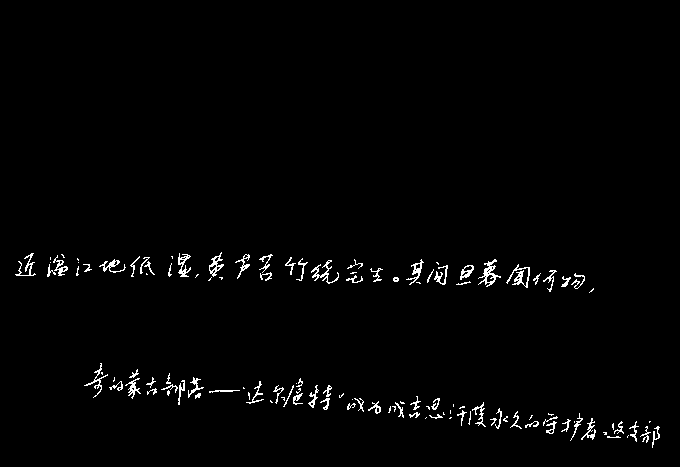 近湓江地低湿,黄芦苦竹绕宅生。其间旦暮闻何物,
奇的蒙古部落——“达尔扈特”成为成吉思汗陵永久的守护者。这支部